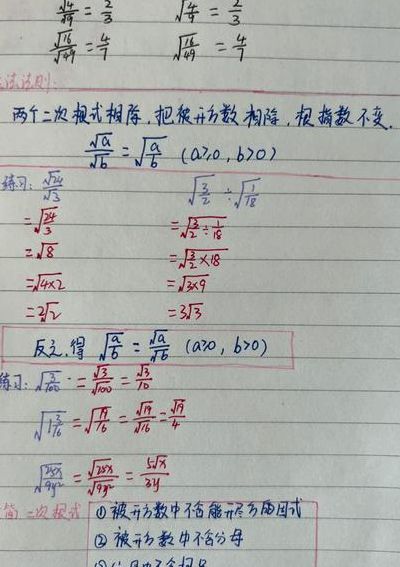 √4/√9 = 2/3   √(4/9) = 2/3
√16/√49 = 4/7   √(16/49) = 4/7
法法则:
两个二次根式相除,把被开方数相除,根指数不变.
√a/√b = √(a/b) (a≥0, b>0)
练习: √24/√3   √(3/2) ÷ √(1/18)
=√(24/3)   =√(3/2 ÷ 1/18)
=√8   =√(3/2 ×18)
=√(4×2)   =√(3×9)
=2√2   =3√3
反之,得 √(a/b) = √a/√b (a≥0, b>0)
练习: √(3/100) = √3/√100 = √3/10
√(1 3/16) = √(19/16) = √19/√16 = √19/4
√(25x/9y²) = √25x/√9y² = 5√x/3y
简二次根式 ①被开方数中不含能开尽方的因式
②被开方数中不含分母